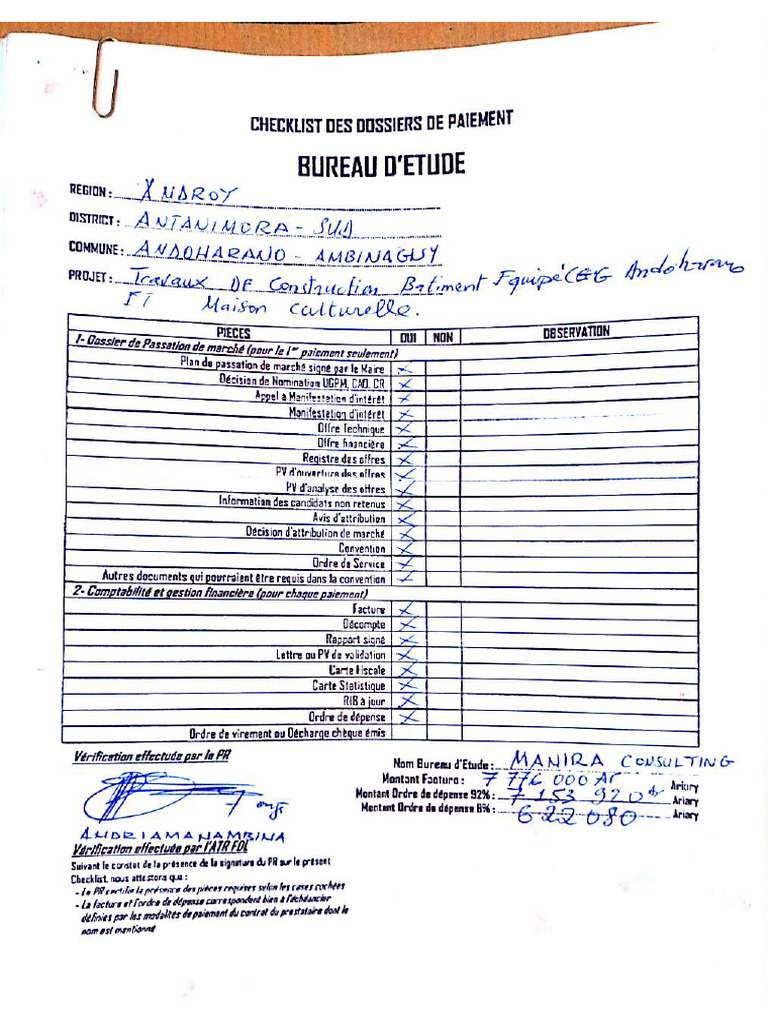 CHECKLIST DES DOSSIERS DE PAIEMENT
BUREAU D'ETUDE
REGION : ANDROY
DISTRICT : ANTANIMORA - SUD
COMMUNE : ANDOHARANO - AMBINAGNY
PROJET : Travaux DE Construction Batiment Equipé CEG Andoharano
ET Maison Culturelle.
PIECES OUI NON OBSERVATION
1- Dossier de Passation de marché (pour le 1er paiement seulement)
Plan de passation de marché signé par le Maire X
Décision de Nomination UGPM, CAO, CR X
Appel à Manifestation d'intérêt X
Manifestation d'intérêt X
Offre Technique X
Offre financière X
Registre des offres X
PV d'ouverture des offres X
PV d'analyse des offres X
Information des candidats non retenus X
Avis d'attribution X
Décision d'attribution de marché X
Convention X
Ordre de Service X
Autres documents qui pourraient être requis dans la convention X
2- Comptabilité et gestion financière (pour chaque paiement)
Facture X
Décompte X
Rapport signé X
Lettre ou PV de validation X
Carte Fiscale X
Carte Statistique X
RIB à jour X
Ordre de dépense X
Ordre de virement ou Décharge chèque émis
Vérification effectuée par le PR
Nom Bureau d'Etude : MANIRA CONSULTING
Montant Facture : 7 776 000 Ar Ariary
Montant Ordre de dépense 92% : 7 153 920 Ar Ariary
Montant Ordre de dépense 8% : 622 080 Ariary
ANDRIAMANAMBINA
Vérification effectuée par l'ATR FOL
Suivant le constat de la présence de la signature du PR sur le présent
Checklist, nous attestons que :
- Le PR certifie la présence des pièces requises selon les cases cochées
- La facture et l'ordre de dépense correspondent bien à l'échéancier
définies par les modalités de paiement du contrat du prestataire dont le
nom est mentionné